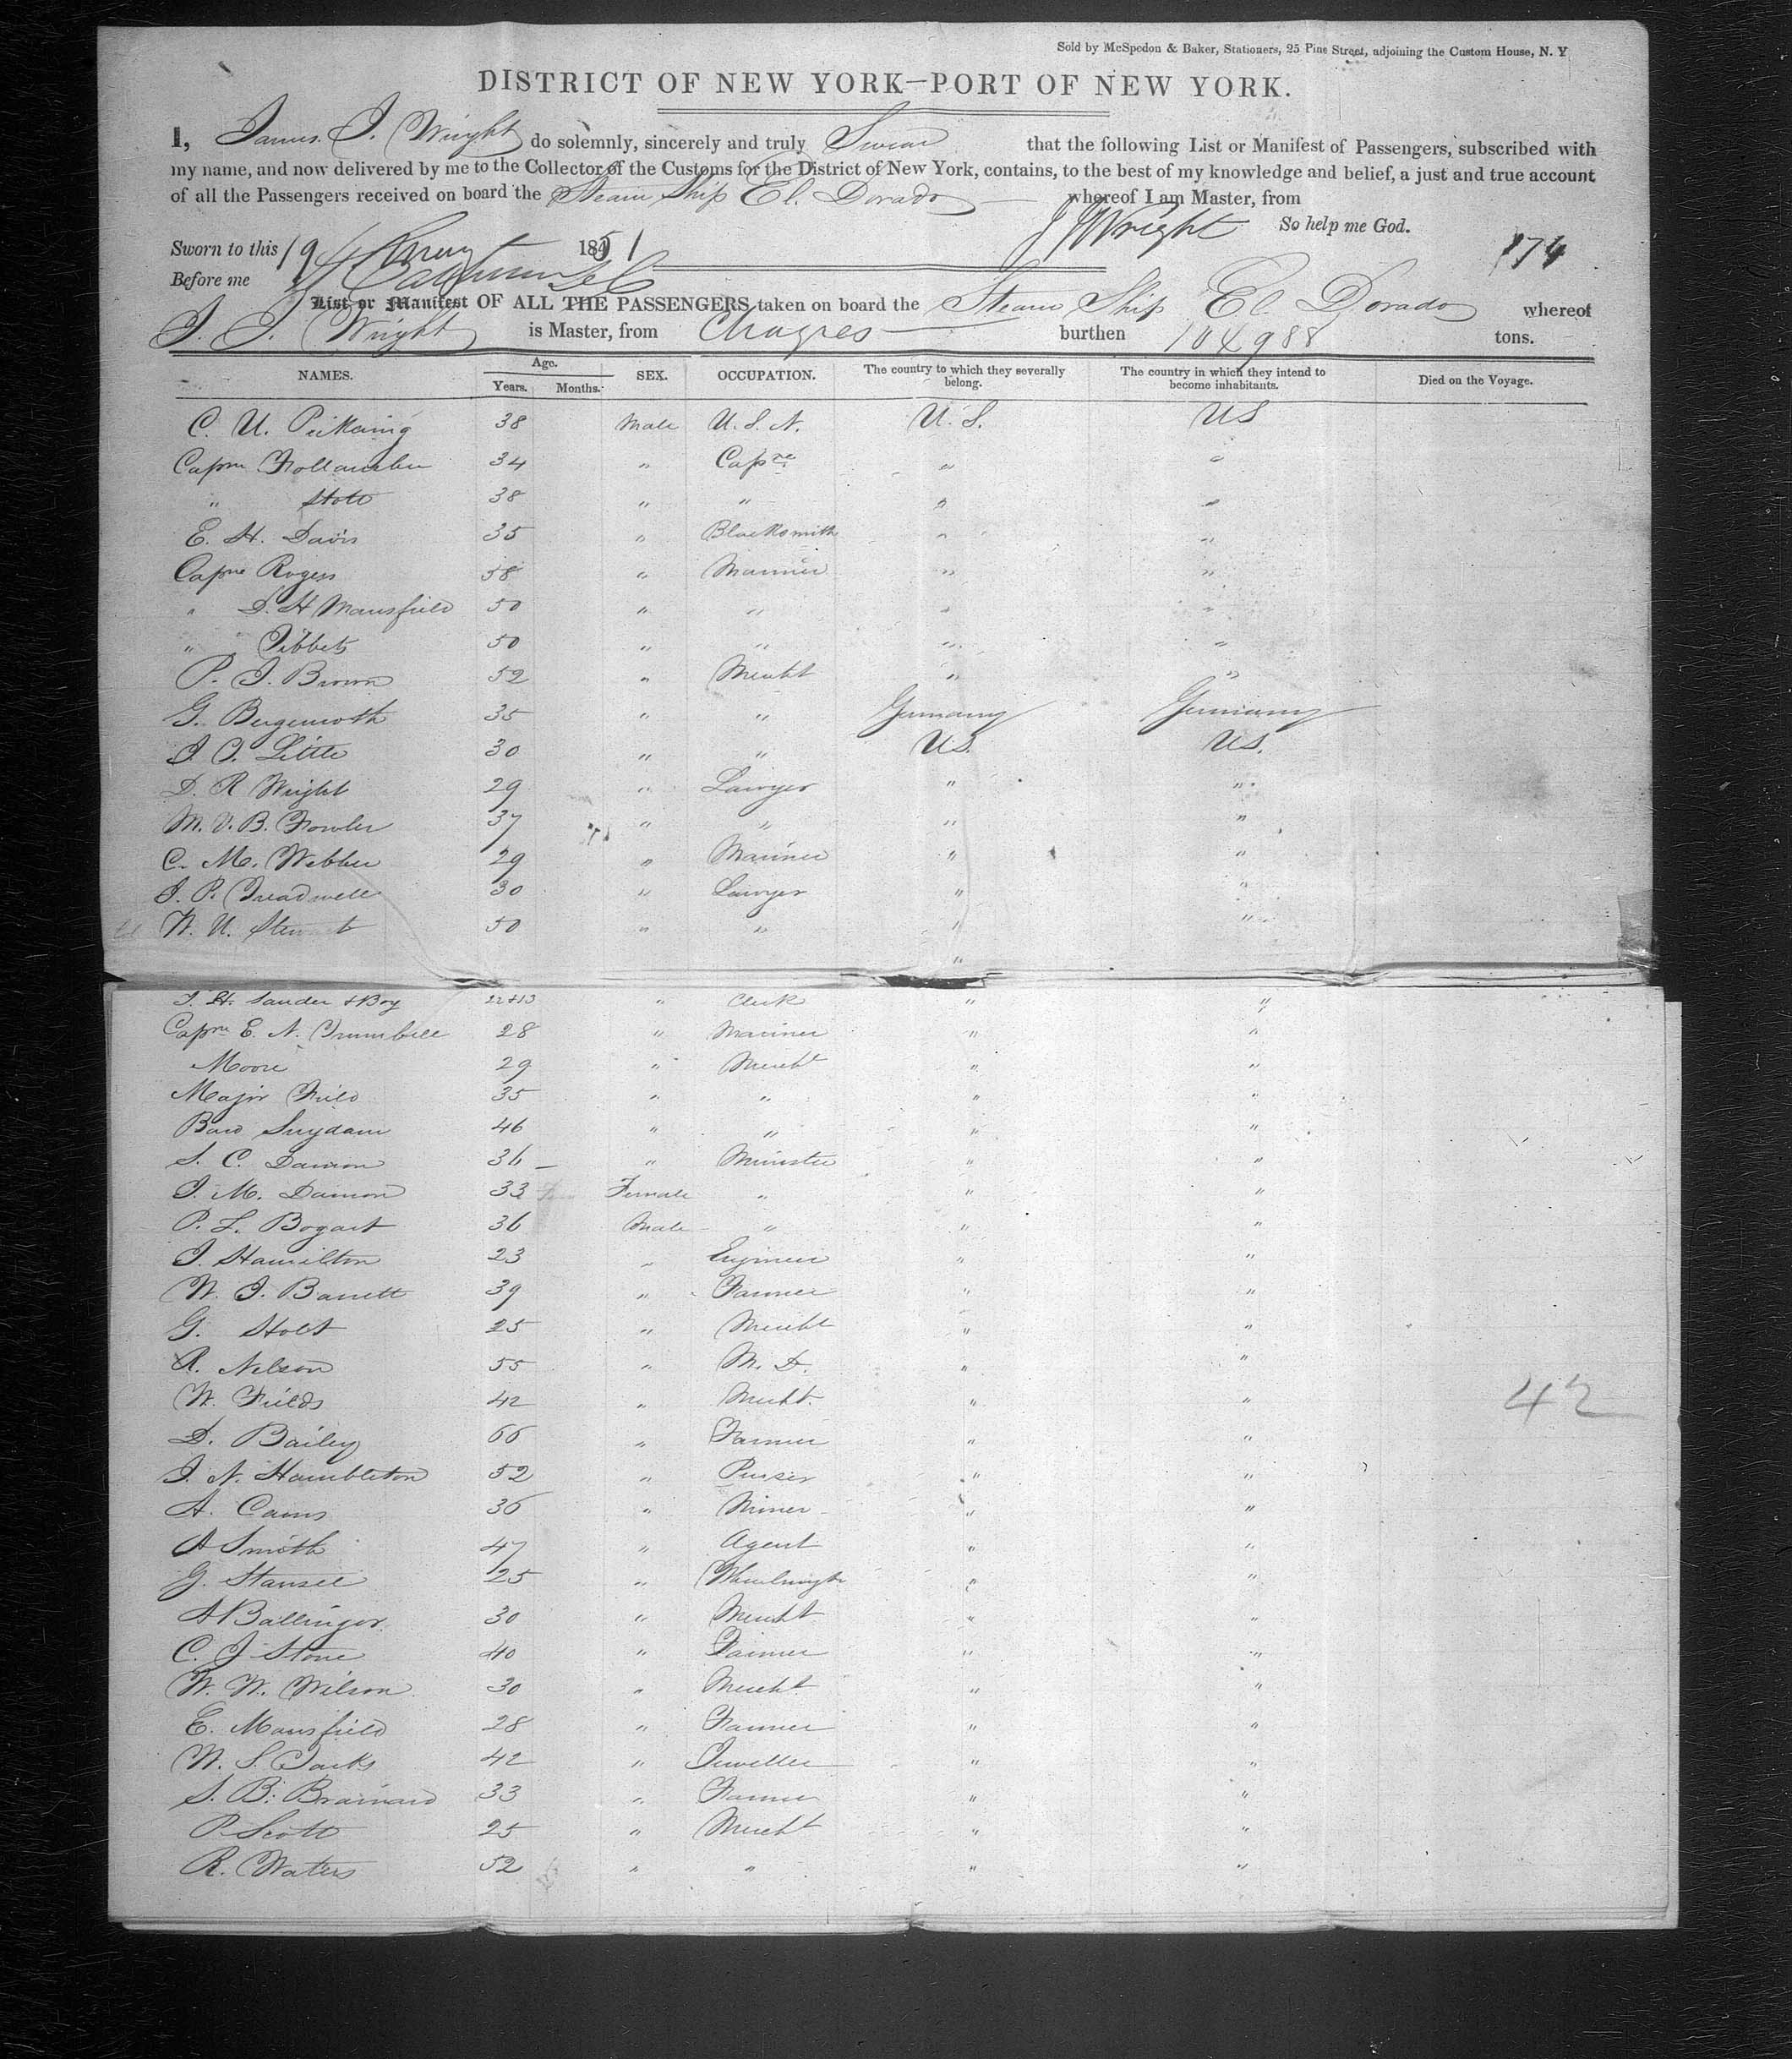 Sold by McSpedon & Baker, Stationers, 25 Pine Street, adjoining the Custom House, N. Y
DISTRICT OF NEW YORK—PORT OF NEW YORK.
I, James J. Wright do solemnly, sincerely and truly Swear that the following List or Manifest of Passengers, subscribed with
my name, and now delivered by me to the Collector of the Customs for the District of New York, contains, to the best of my knowledge and belief, a just and true account
of all the Passengers received on board the Steam Ship El. Dorado whereof I am Master, from
J J Wright So help me God.
Sworn to this 19 1851 174
Before me
List or Manifest OF ALL THE PASSENGERS taken on board the Steam Ship El. Dorado whereof
J. J. Wright is Master, from Chagres burthen 104988 tons.
NAMES. Age. Years. Months. SEX. OCCUPATION. The country to which they severally belong. The country in which they intend to become inhabitants. Died on the Voyage.
C. U. Pickering 38 Male U. S. N. U. S. US
Capne 34 " Capne " "
" Stott 38 " " " "
E. H. Davis 35 " Blacksmith " "
Capne Rogers 58 " Mariner " "
" D. H Mansfield 50 " " " "
" Tibbets 50 " " " "
P. J. Brown 52 " Mercht " "
G. Bergenroth 35 " " Germany Germany
J. J. Little 30 " " US. US.
D. R Wright 29 " Lawyer " "
M. V. B. Fowler 37 " " " "
C. M. Webber 29 " Mariner " "
J. P. Treadwell 30 " Lawyer " "
W. U. 50 " " " "
"
J. H. Sander & Boy 22 & 13 " Clerk " "
Capne E. N. Trumbell 28 " Mariner " "
Moore 29 " Mercht " "
Major Field 35 " " " "
Bard Suydam 46 " " " "
S. C. Damon 36 " Minister " "
J. M. Damon 33 Female " " "
P. L. Bogart 36 Male " " "
J. Hamilton 23 " Engineer " "
W. J. Barrett 39 " Farmer " "
G. Holt 25 " Mercht " "
R. Nelson 55 " M. D. " "
W. Fields 42 " Mercht. " "
42
D. Bailey 66 " Farmer " "
J. N. Hambleton 52 " Purser " "
A. Cairns 36 " Miner " "
A Smith 47 " Agent " "
G. Stansell 25 " Wheelwright " "
A Ballinger 30 " Mercht " "
C. J Stone 40 " Farmer " "
W. W. Wilson 30 " Mercht " "
E. Mansfield 28 " Farmer " "
W. S. Jacks 42 " Jeweller " "
S. B. Brainard 33 " Farmer " "
P. Scott 25 " Mercht " "
R. Waters 52 " " " "